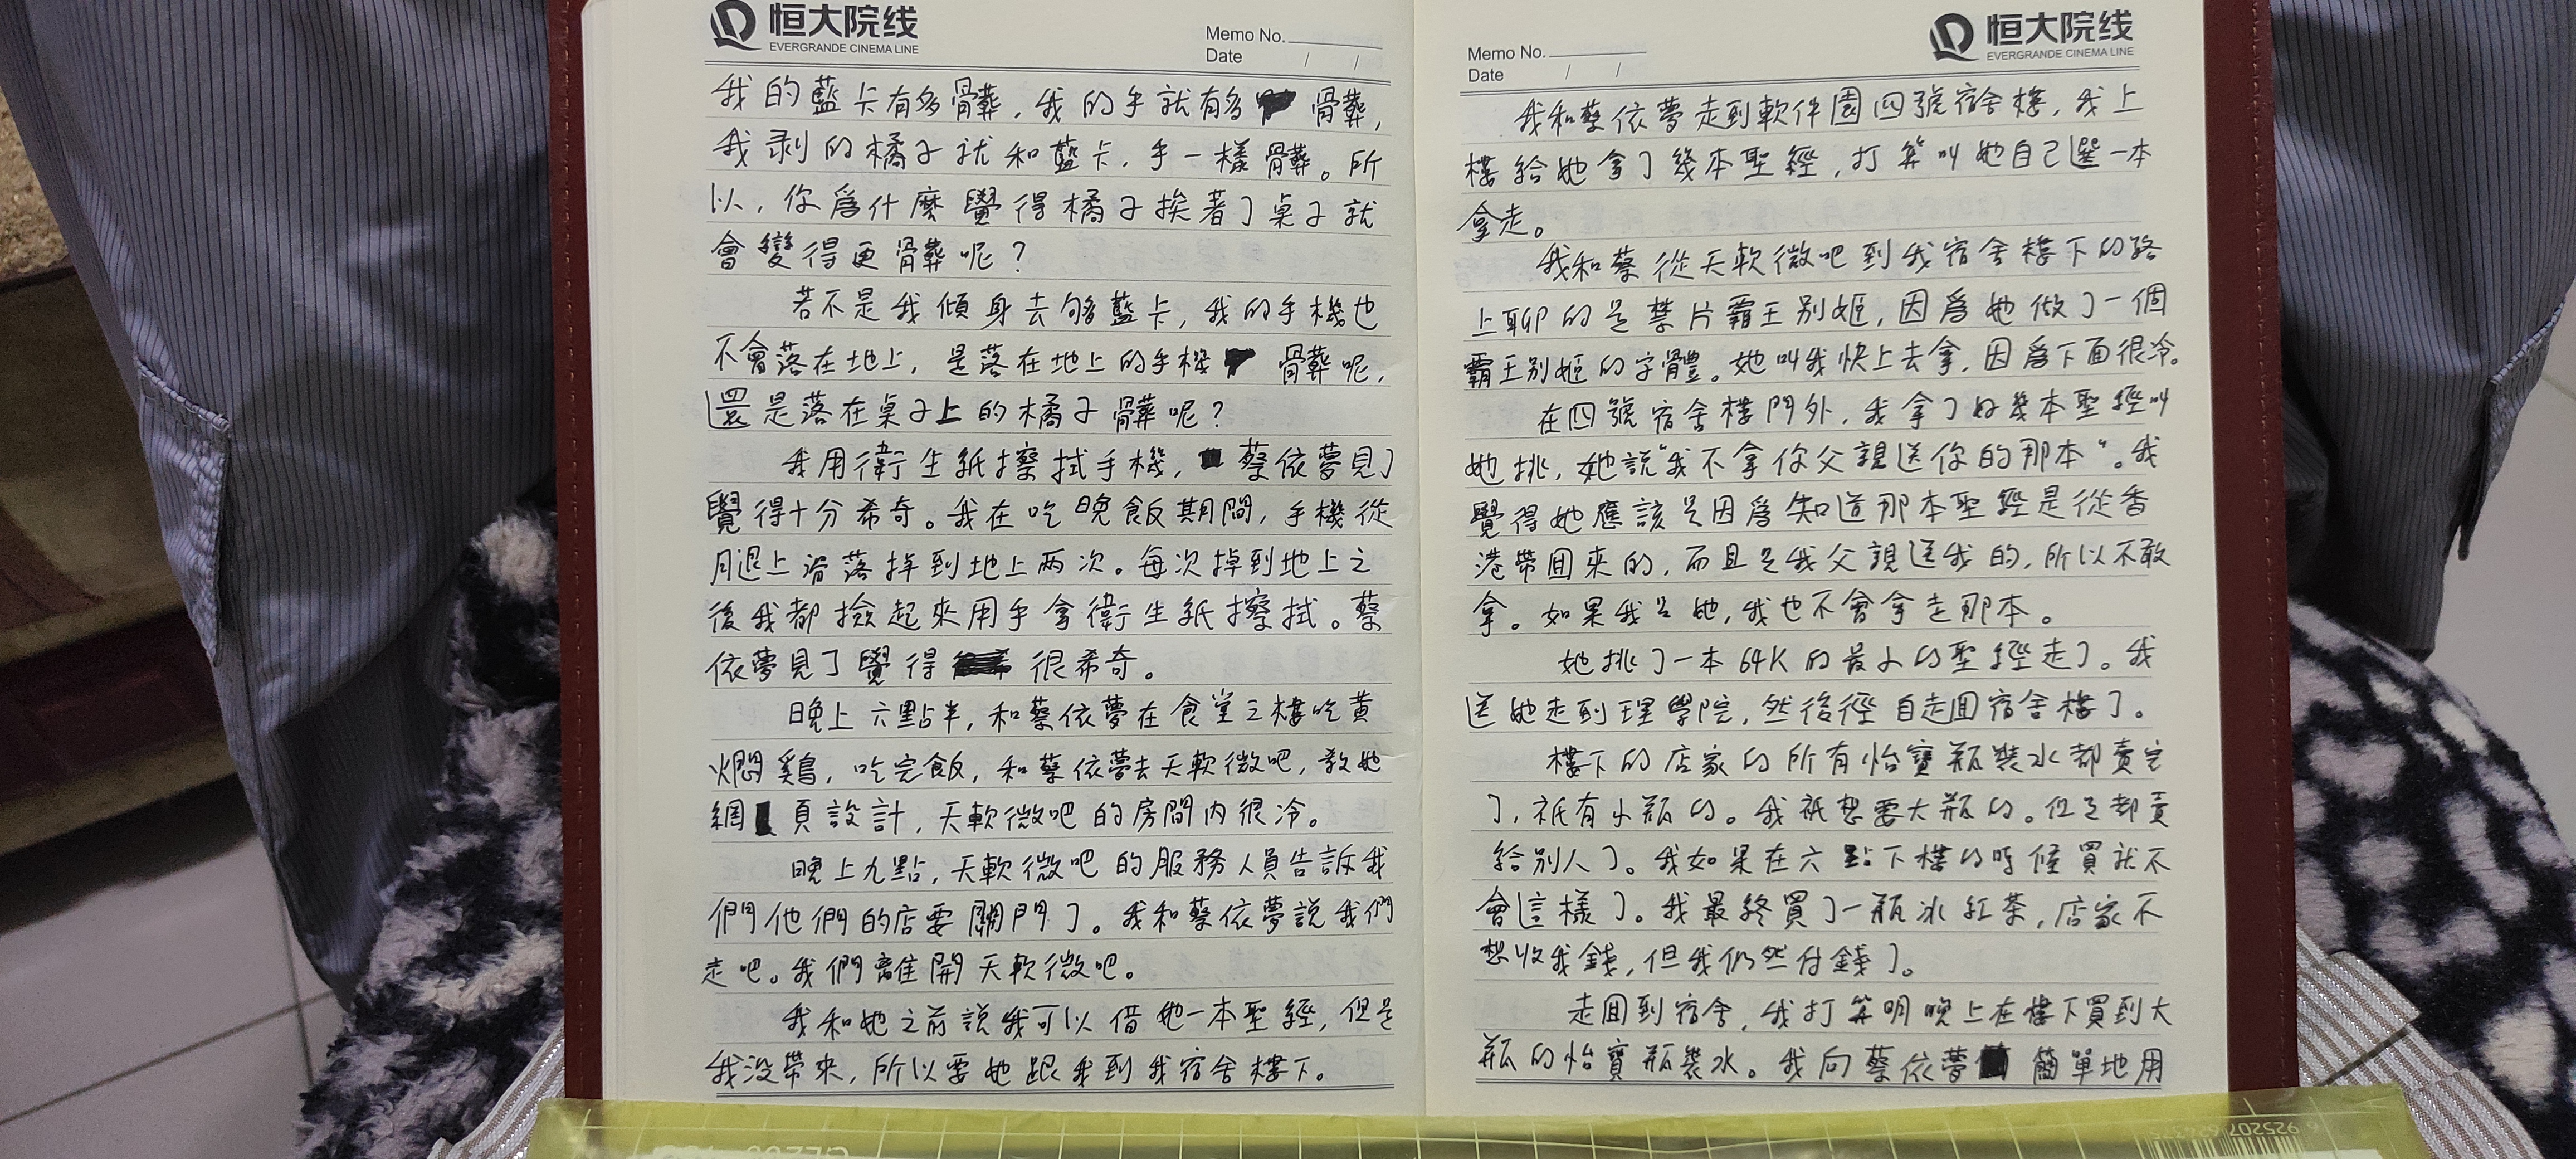 恒大院线
EVERGRANDE CINEMA LINE
Memo No.
Date / /
我的藍卡有多骨葬，我的手就有多骨葬，
我剥的橘子就和藍卡，手一樣骨葬。所
以，你爲什麼覺得橘子挨着了桌子就
會變得更骨葬呢？
若不是我傾身去够藍卡，我的手機也
不會落在地上，是落在地上的手機骨葬呢，
還是落在桌子上的橘子髒呢？
我用衛生紙擦拭手機，蔡依夢見了
覺得十分希奇。我在吃晚飯期間，手機從
腿上滑落掉到地上两次。每次掉到地上之
後我都撿起來用手拿衛生紙擦拭。蔡
依夢見了覺得很希奇。
晚上六點半，和蔡依夢在食堂二樓吃黄
燜鷄，吃完飯，和蔡依夢去天軟微吧，教她
網頁設計，天軟微吧的房間内很冷。
晚上九點，天軟微吧的服務人員告訴我
們他們的店要關門了。我和蔡依夢説我們
走吧。我們離開天軟微吧。
我和她之前説我可以借她一本聖經，但是
我没帶來，所以要她跟我到我宿舍樓下。
Memo No.
Date / /
恒大院线
EVERGRANDE CINEMA LINE
我和蔡依夢走到軟件園四號宿舍樓，我上
樓給她拿了幾本聖經，打算叫她自己選一本
拿走。
我和蔡從天軟微吧到我宿舍樓下的路
上聊的是禁片霸王别姬，因爲她做了一個
霸王别姬的字體。她叫我快上去拿，因爲下面很冷。
在四號宿舍樓門外，我拿了好幾本聖經叫
她挑，她説“我不拿你父親送你的那本“。我
覺得她應該是因爲知道那本聖經是從香
港帶回來的，而且是我父親送我的，所以不敢
拿。如果我是她，我也不會拿走那本。
她挑了一本64K的最小的聖經走了。我
送她走到理學院，然後徑自走回宿舍樓了。
樓下的店家的所有怡寶瓶裝水都賣完
了，祇有小瓶的。我祇想要大瓶的。但是都賣
給别人了。我如果在六點下樓的時候買就不
會這樣了。我最終買了一瓶冰紅茶，店家不
想收我錢，但我仍然付錢了。
走回到宿舍，我打算明晚上在樓下買到大
瓶的怡寶瓶裝水。我向蔡依夢簡單地用